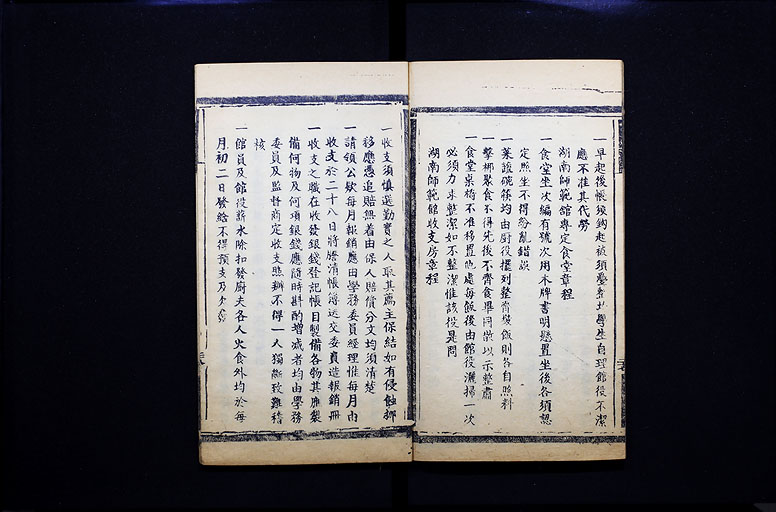 一早起後帳須鈎起被須疊齊此學生自理館役不潔
應不准其代勞
湖南師範館專定食堂章程
一食堂坐次編有號次用木牌書明懸置坐後各須認
定照坐不得紛亂錯誤
一菜蔬碗筷均由厨役擺列整齊後飯則各自照料
一擊梆聚食不得先後不齊食畢同散以示整肅
一食堂桌椅不准移置他處每飯後由館役灑掃一次
必須力求整潔如不整潔惟該役是問
湖南師範館收支房章程
一收支須慎選勤實之人取其薦主保結如有侵蝕挪
移應憑追賠無着由保人賠償分文均須清楚
一請領公欵每月報銷應由學務委員經理惟每月由
收支於二十八日將賬清帳簿送交委員造報銷冊
一收支之職在收發銀錢登記帳目製備各物其應製
備何物及何項銀錢應隨時斟酌增減者均由學務
委員及監督商定收支照辦不得一人獨斷致難稽
核
一館員及館役薪水除扣發廚夫各人火食外均於每
月初二日發給不得預支及